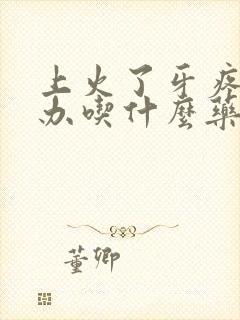 上火了牙疼
办喫什麼藥
董卿